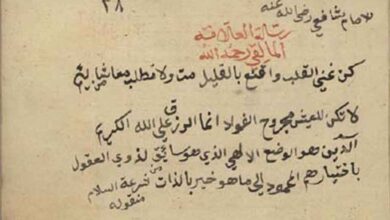 ٢٨
للامام شافعي رضي الله عنه
رسالة العلامة
المالقي رحمه الله
كن غني القلب واقنع بالقليل مت ولا تطلب معاشا من لئيم
لا تكن للعيش مجروح الفواد انما الرزق على الله الكريم
الدين هو الوضع الالهي الذي هو سائق لذوي العقول
باختيارهم المحمود الى ما هو خير بالذات من شرعة السلام
منقوله